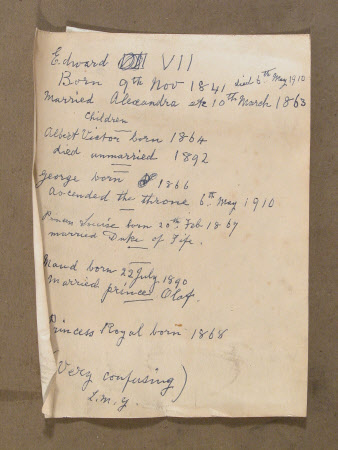 Edward VII
Born 9th Nov 1841 died 6th May 1910
Married Alexandra etc 10th March 1863
Children
Albert Victor born 1864
died unmarried 1892
George born 1866
ascended the throne 6th May 1910
Princess Louise born 20th Feb 1867
married Duke of Fife.
Maud born 22 July 1890
Married prince Olaf.
Princess Royal born 1868
(Very confusing)
L.M.Y.